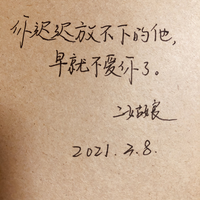 你迟迟放不下的他,
早就不爱你了。
二姑娘
2021.3.8.